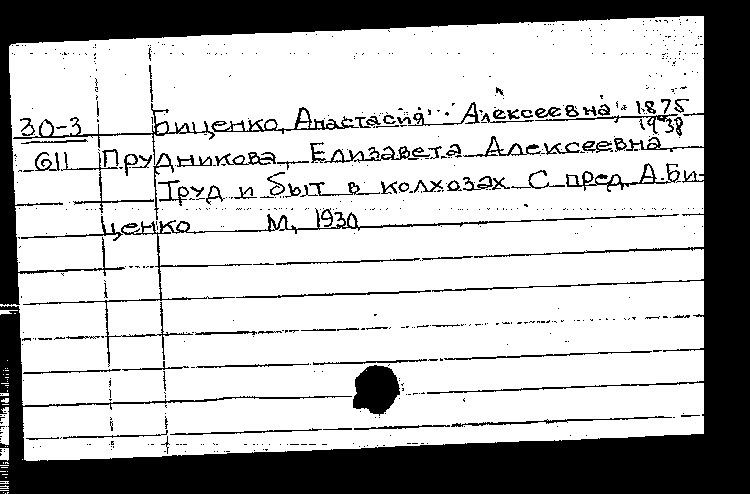 Биценко, Анастасия Алексеевна, 1875
30-3 1938
611 Прудникова, Елизавета Алексеевна.
Труд и быт в колхозах С пред. А.Би-
ценко М, 1930